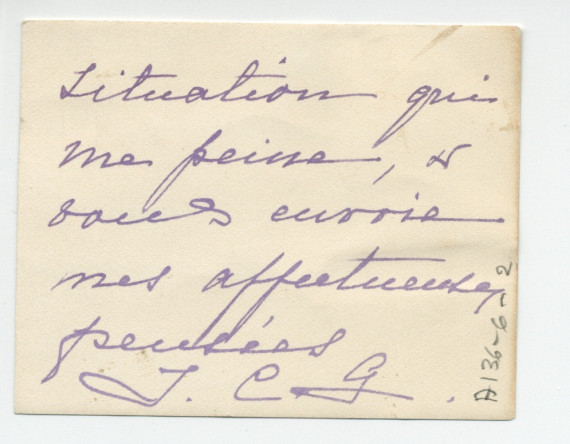 situation qui
me peine, &
vous envoie
mes affectueuses
pensées
J. C. G.
A136-6-2